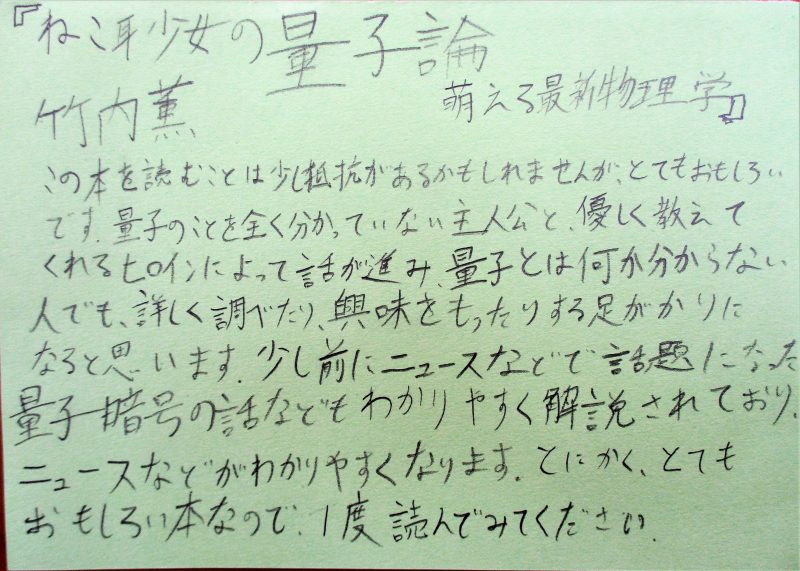 『ねこ耳少女の量子論
萌える最新物理学』
竹内薫
この本を読むことは少し抵抗があるかもしれませんが、とてもおもしろい
です。量子のことを全く分かっていない主人公と、優しく教えて
くれるヒロインによって話が進み、量子とは何か分からない
人でも、詳しく調べたり、興味をもったりする足がかりに
なると思います。少し前にニュースなどで話題になった
量子暗号の話などもわかりやすく解説されており、
ニュースなどがわかりやすくなります。とにかく、とても
おもしろい本なので、1度読んでみてください。